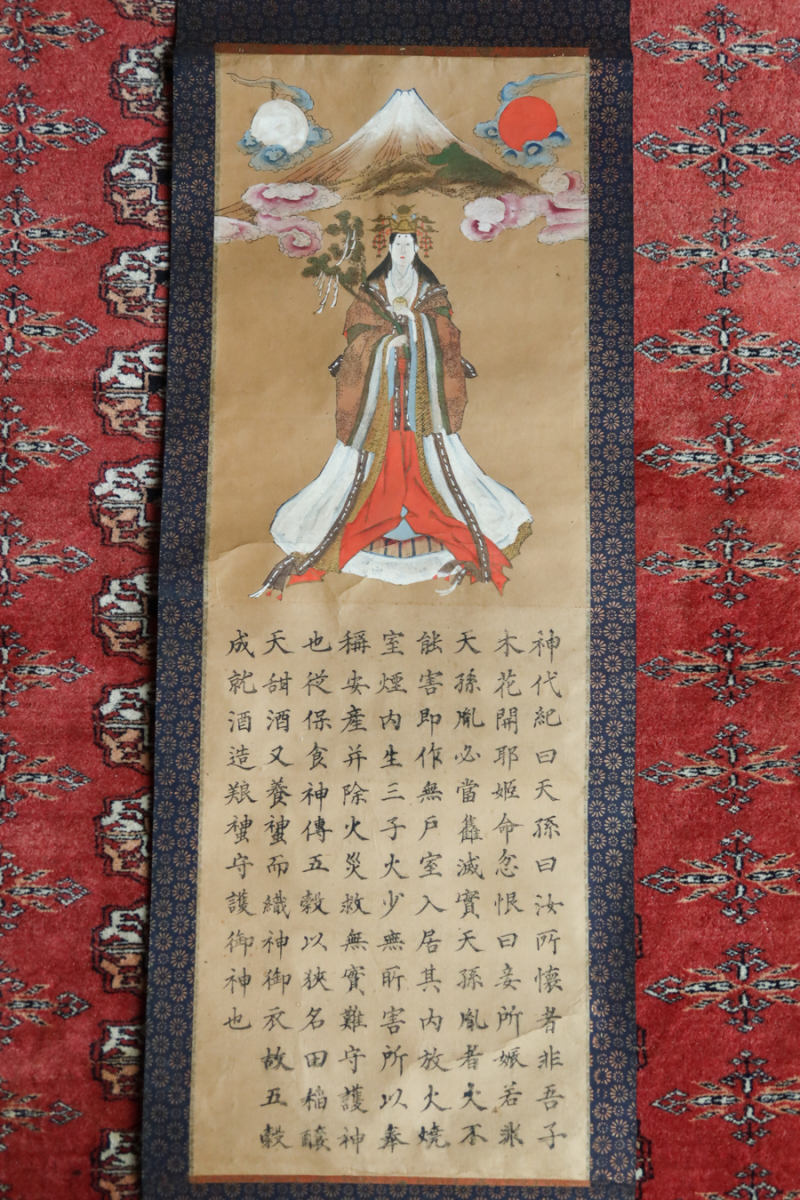 神代紀曰天孫曰汝所懷者非吾子
木花開耶姫命忽恨曰妾所娠若非
天孫胤必當滅實天孫胤者火不
能害即作無戸室入居其内放火燒
室煙内生三子火少無所害所以奉
稱安産并除火災救無實難守護神
也従保食神傳五穀以狹名田稲釀
天甜酒又養蚕而織神御衣故五穀
成就酒造蚕守護御神也